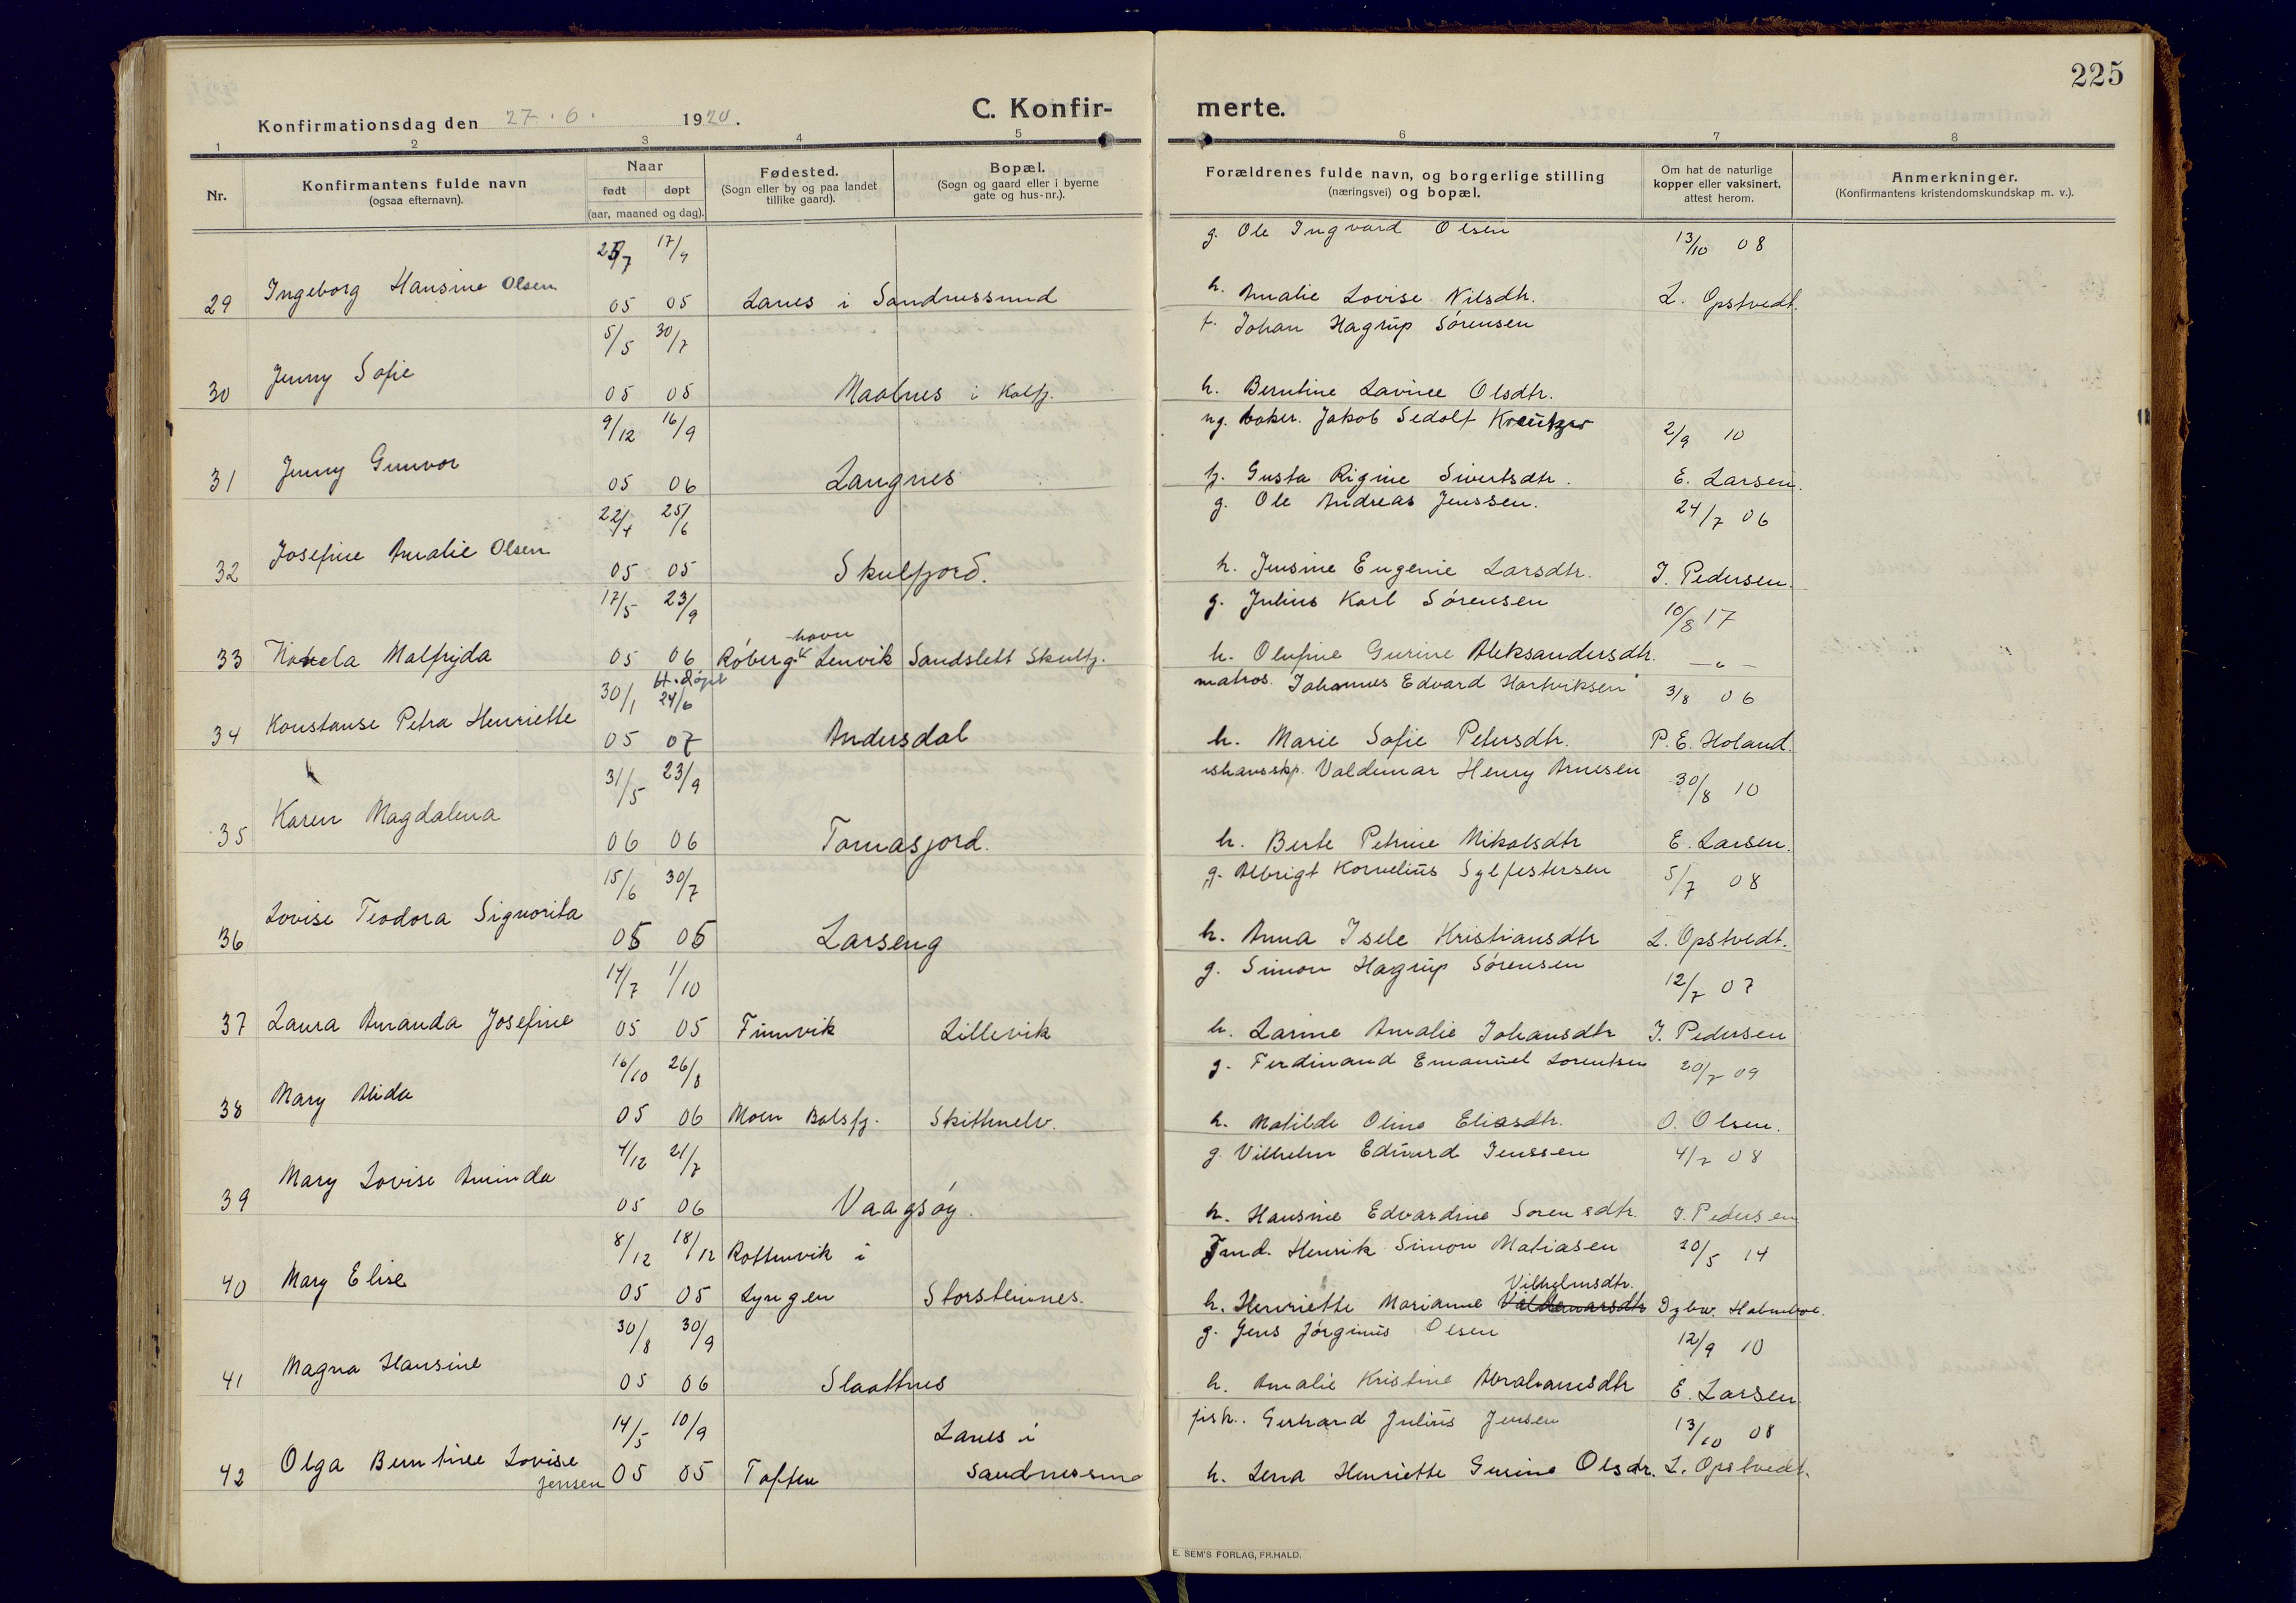 225
Konfirmationsdag den 27.6. 1920.
C. Konfir-merte.
1 2 3 4 5 6 7 8
Nr.
Konfirmantens fulde navn
(ogsaa efternavn).
Naar
født døpt
(aar, maaned og dag).
Fødested.
(Sogn eller by og paa landet
tillike gaard).
Bopæl.
(Sogn og gaard eller i byerne
gate og hus-nr.).
Forældrenes fulde navn, og borgerlige stilling
(næringsvei) og bopæl.
Om hat de naturlige
kopper eller vaksinert,
attest herom.
Anmerkninger.
(Konfirmantens kristendomskundskap m. v.).
17/9 g. Ole Ingvard Olsen 13/10 08
29 Ingeborg Hansine Olsen 05 05 Lanes i Sandnessund h. Amalie Lovise Nilsdtr. L. Opstvedt.
5/5 30/7 f. Johan Hagrup Sörensen
30 Jenny Sofie 05 05 Maalnes i Kalfj. h. Berntine Lavine Olsdtr.
9/12 16/9 ug. baker. Jakob Sedolf Kreutzer 2/9 10
31 Jenny Gunvor 05 06 Langnes p. Gusta Rigine Sivertsdtr. E. Larsen.
22/4 25/6 g. Ole Andreas Jenssen. 24/7 06
32 Josefine Amalie Olsen 05 05 Skulfjord. h. Jensine Eugenie Larsdtr. J. Pedersen.
17/5 23/9 g. Julius Karl Sörensen 10/8 17
33 Malfrida 05 06 Röberg havn Lenvik Sandslett Skulfj. h. Olufine Gurine Aleksandersdtr. — " —
30/1 H. döpt 24/6 matros. Johannes Edvard Hartviksen 3/8 06
34 Konstanse Petra Henriette 05 07 Andersdal h. Marie Sofie Petersdtr. P. E. Holand.
31/5 23/9 ishavsskp. Valdemar Henry Arnesen 30/8 10
35 Karen Magdalena 06 06 Tomasjord. h. Berte Petrine Nikolsdtr E. Larsen.
15/6 30/7 g. Albrigt Kornelius Sylfestersen 5/7 08
36 Lovise Teodora Signorita 05 05 Larseng h. Anna Isele Kristiansdtr L. Opstvedt.
14/7 1/10 g. Simon Hagrup Sörensen 12/7 07
37 Laura Amanda Josefine 05 05 Finnvik Lillevik h. Larine Amalie Johansdtr J. Pedersen
16/10 26/8 g. Ferdinand Emanuel Lorentsen 20/7 09
38 Mary Alida 05 06 Moen Balsfj. Skittenelv. h. Matilde Oline Eliasdtr. O. Olsen.
4/12 21/7 g. Vilhelm Edvard Jenssen 4/7 08
39 Mary Lovise Aminda 05 06 Vaagsöy. h. Hansine Edvardine Sorensdtr. J. Pedersen
8/12 18/12 Rottenvik i Henrik Simon Matiasen 20/5 14
40 Mary Elise 05 05 Lyngen Storsteinnes. h. Henriette Marianne Valdemarsdtr Vilhelmsdtr. Holmboe.
30/8 30/9 g. Jens Jörginus Olsen 12/9 10
41 Magna Hansine 05 06 Slaattnes h. Amalie Kristine Abrahamsdtr E. Larsen
14/5 10/9 Lanes i fisk. Gerhard Julius Jensen 13/10 08
42 Olga Berntine Lovise Jensen 05 05 Toften Sandnessund h. Lena Henriette Gurine Olsdtr. L. Opstvedt.
E. SEM'S FORLAG, FR.HALD.